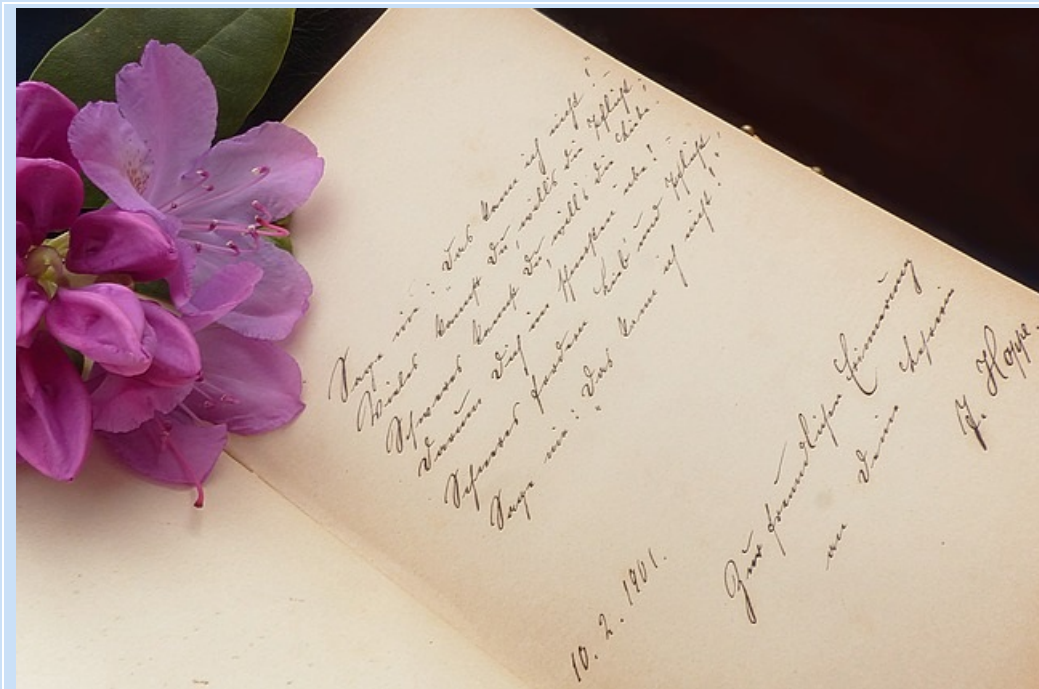 Sage nie: „Das kann ich nicht!“
Vieles kannst Du, will's die Pflicht;
Schweres kannst Du, will's die Liebe.
Darum Dich im Schwersten übe!
Schweres fordern Lieb' und Pflicht;
Sage nie: „Das kann ich nicht!
Zur freundlichen Erinnerung
an Deine Lehrerin
J. Hoppe.
10. 2. 1901.